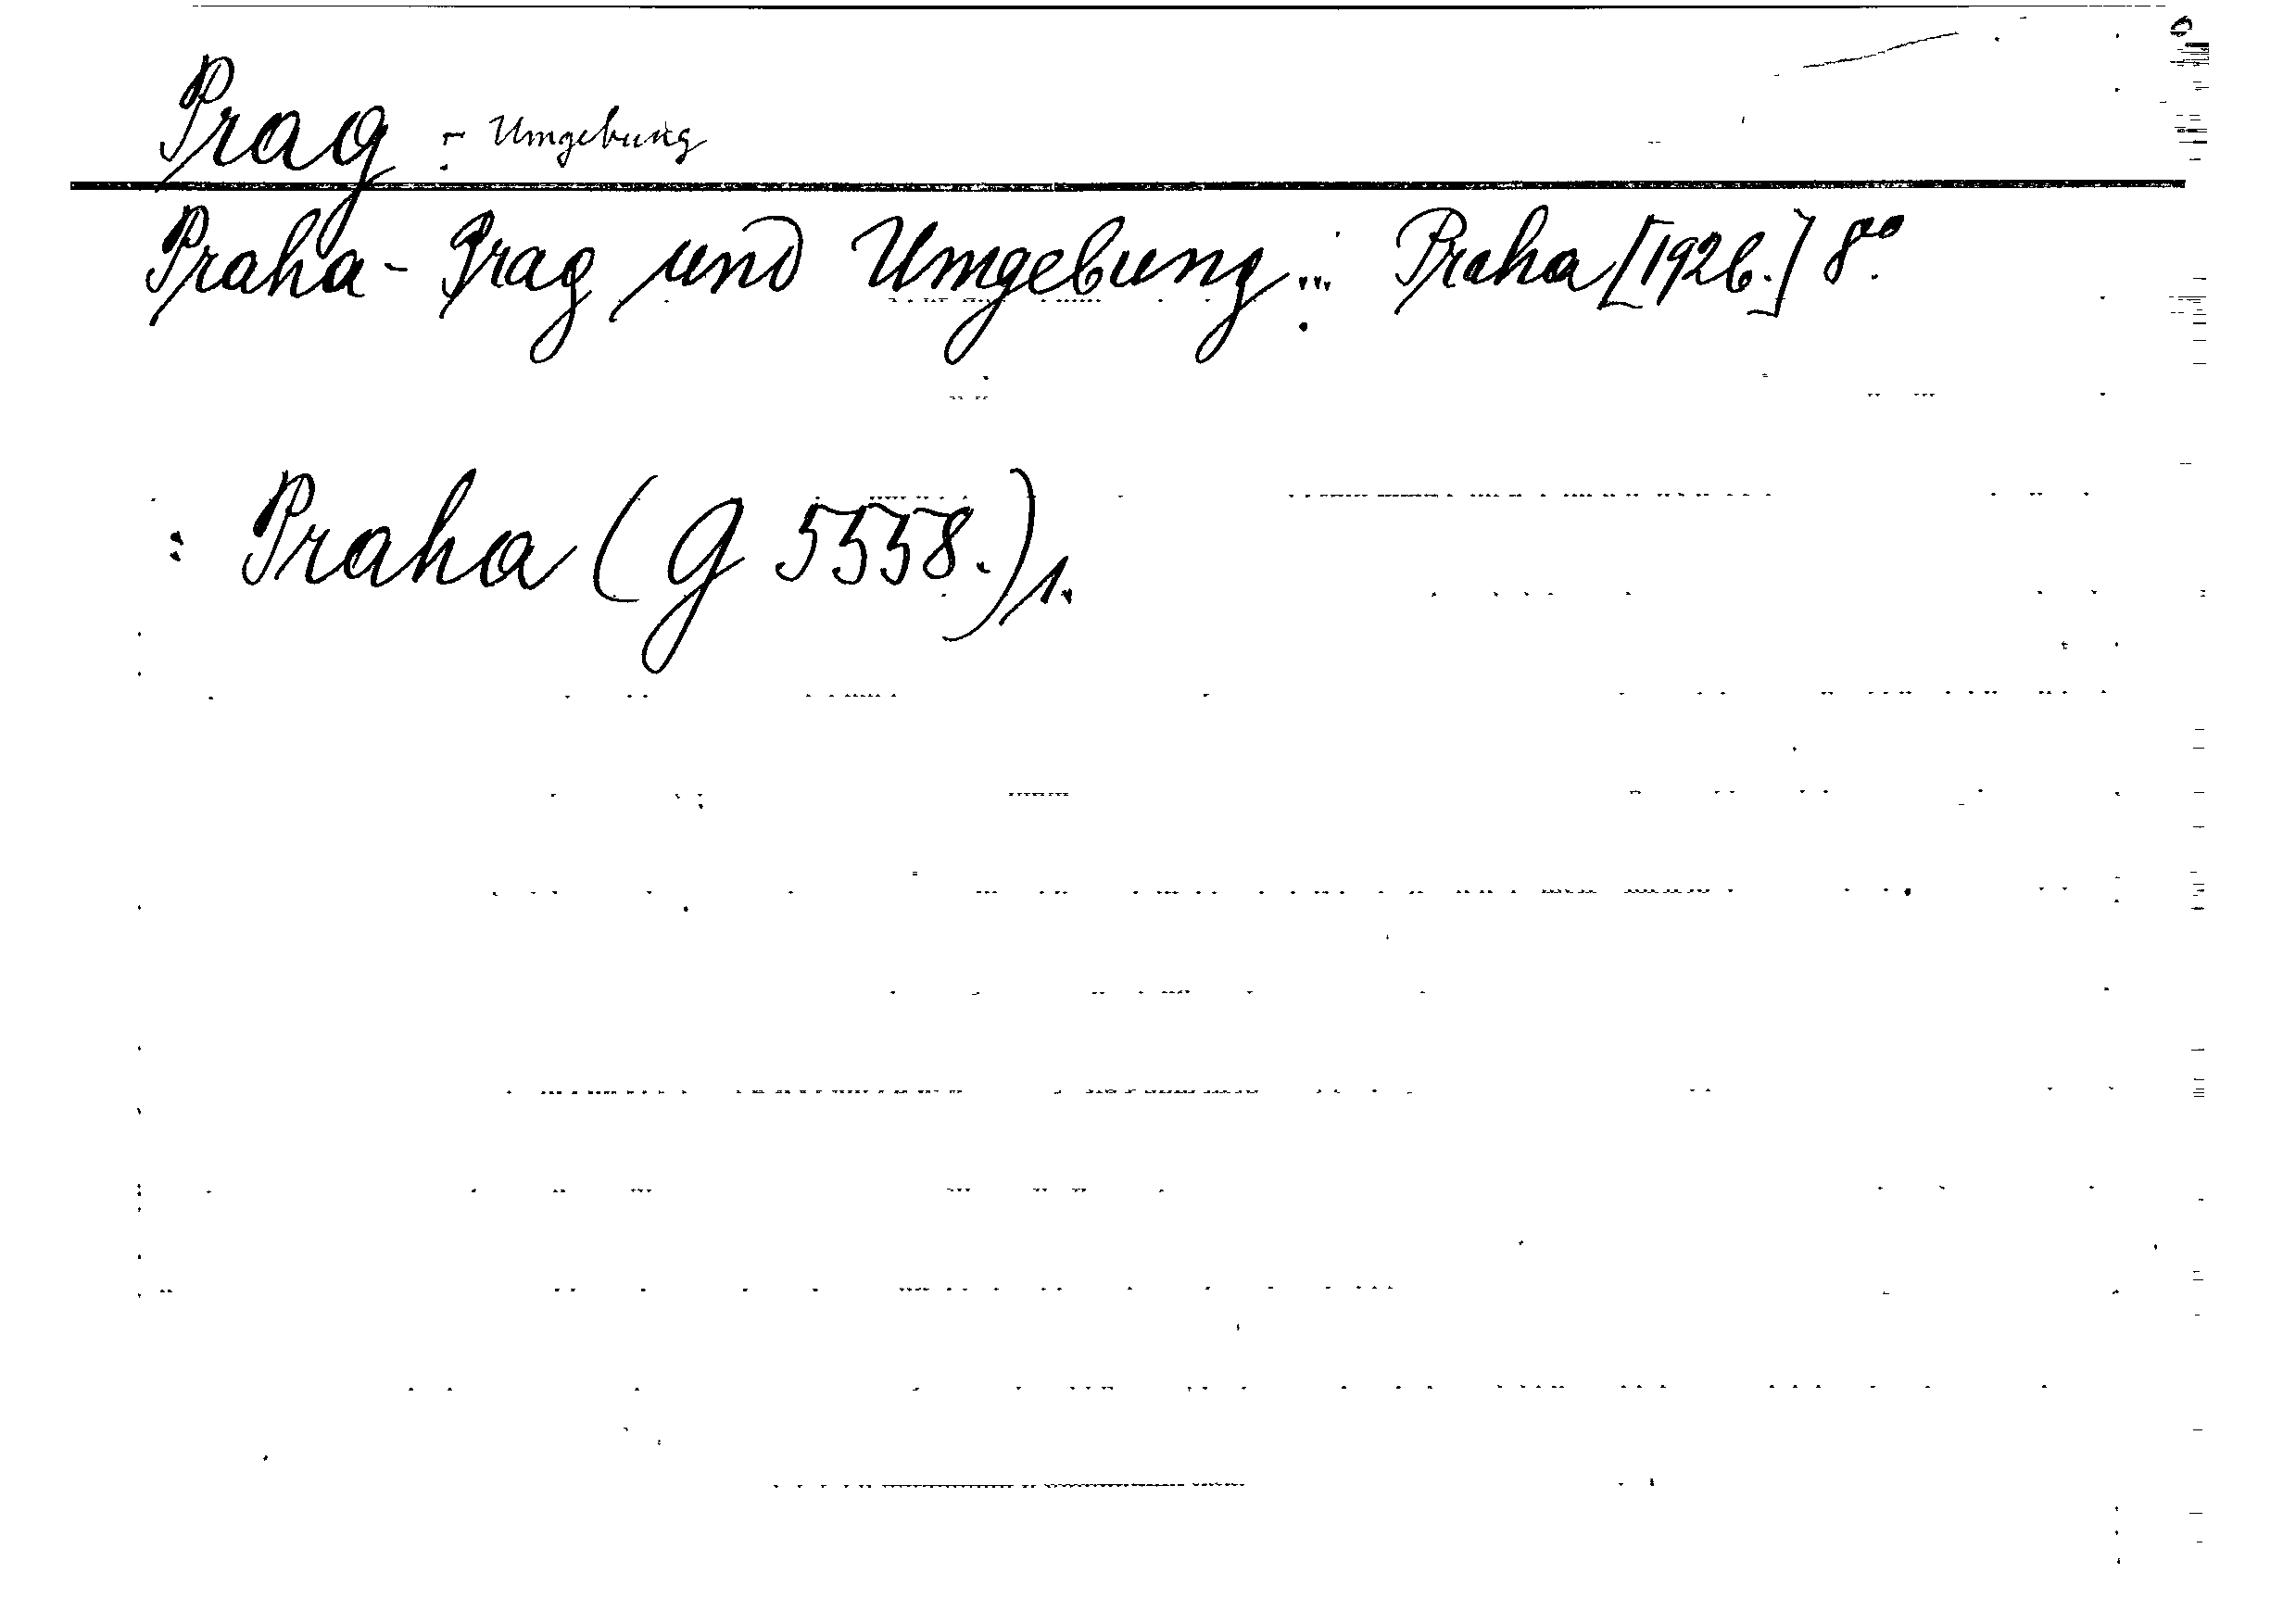 Prag - Umgebung
Praha - Prag und Umgebung... Praha [1926.] 8°.
: Praha (G 5558.) 1.